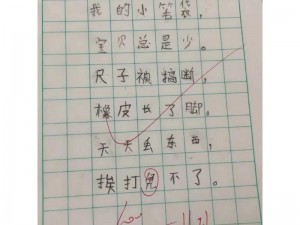 我的小笔袋，
宝贝总是少。
尺子被搞断，
橡皮长了脚。
天天丢东西，
挨打免不了。